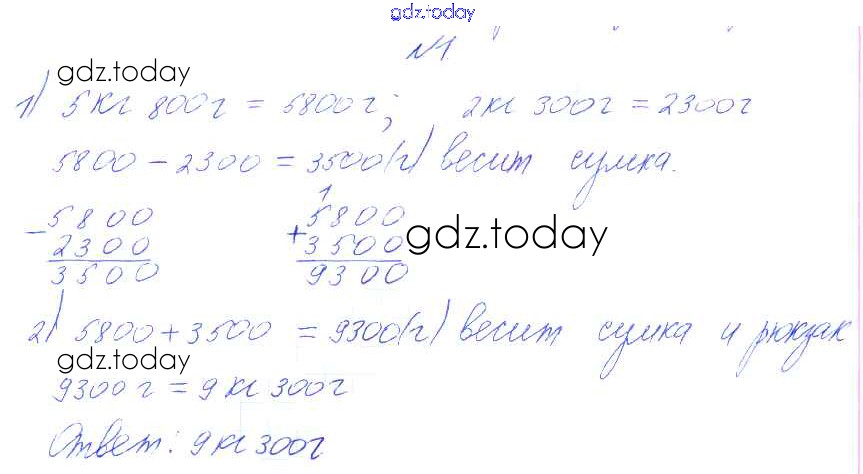 gdz.today
№1.
gdz.today
1) 5 кг 800 г = 5800 г; 2 кг 300 г = 2300 г
5800 - 2300 = 3500 (г) весит сумка.
- 5800
2300
3500
1
+ 5800
3500
9300
gdz.today
2) 5800 + 3500 = 9300 (г) весит сумка и рюкзак
gdz.today
9300 г = 9 кг 300 г
Ответ: 9 кг 300 г